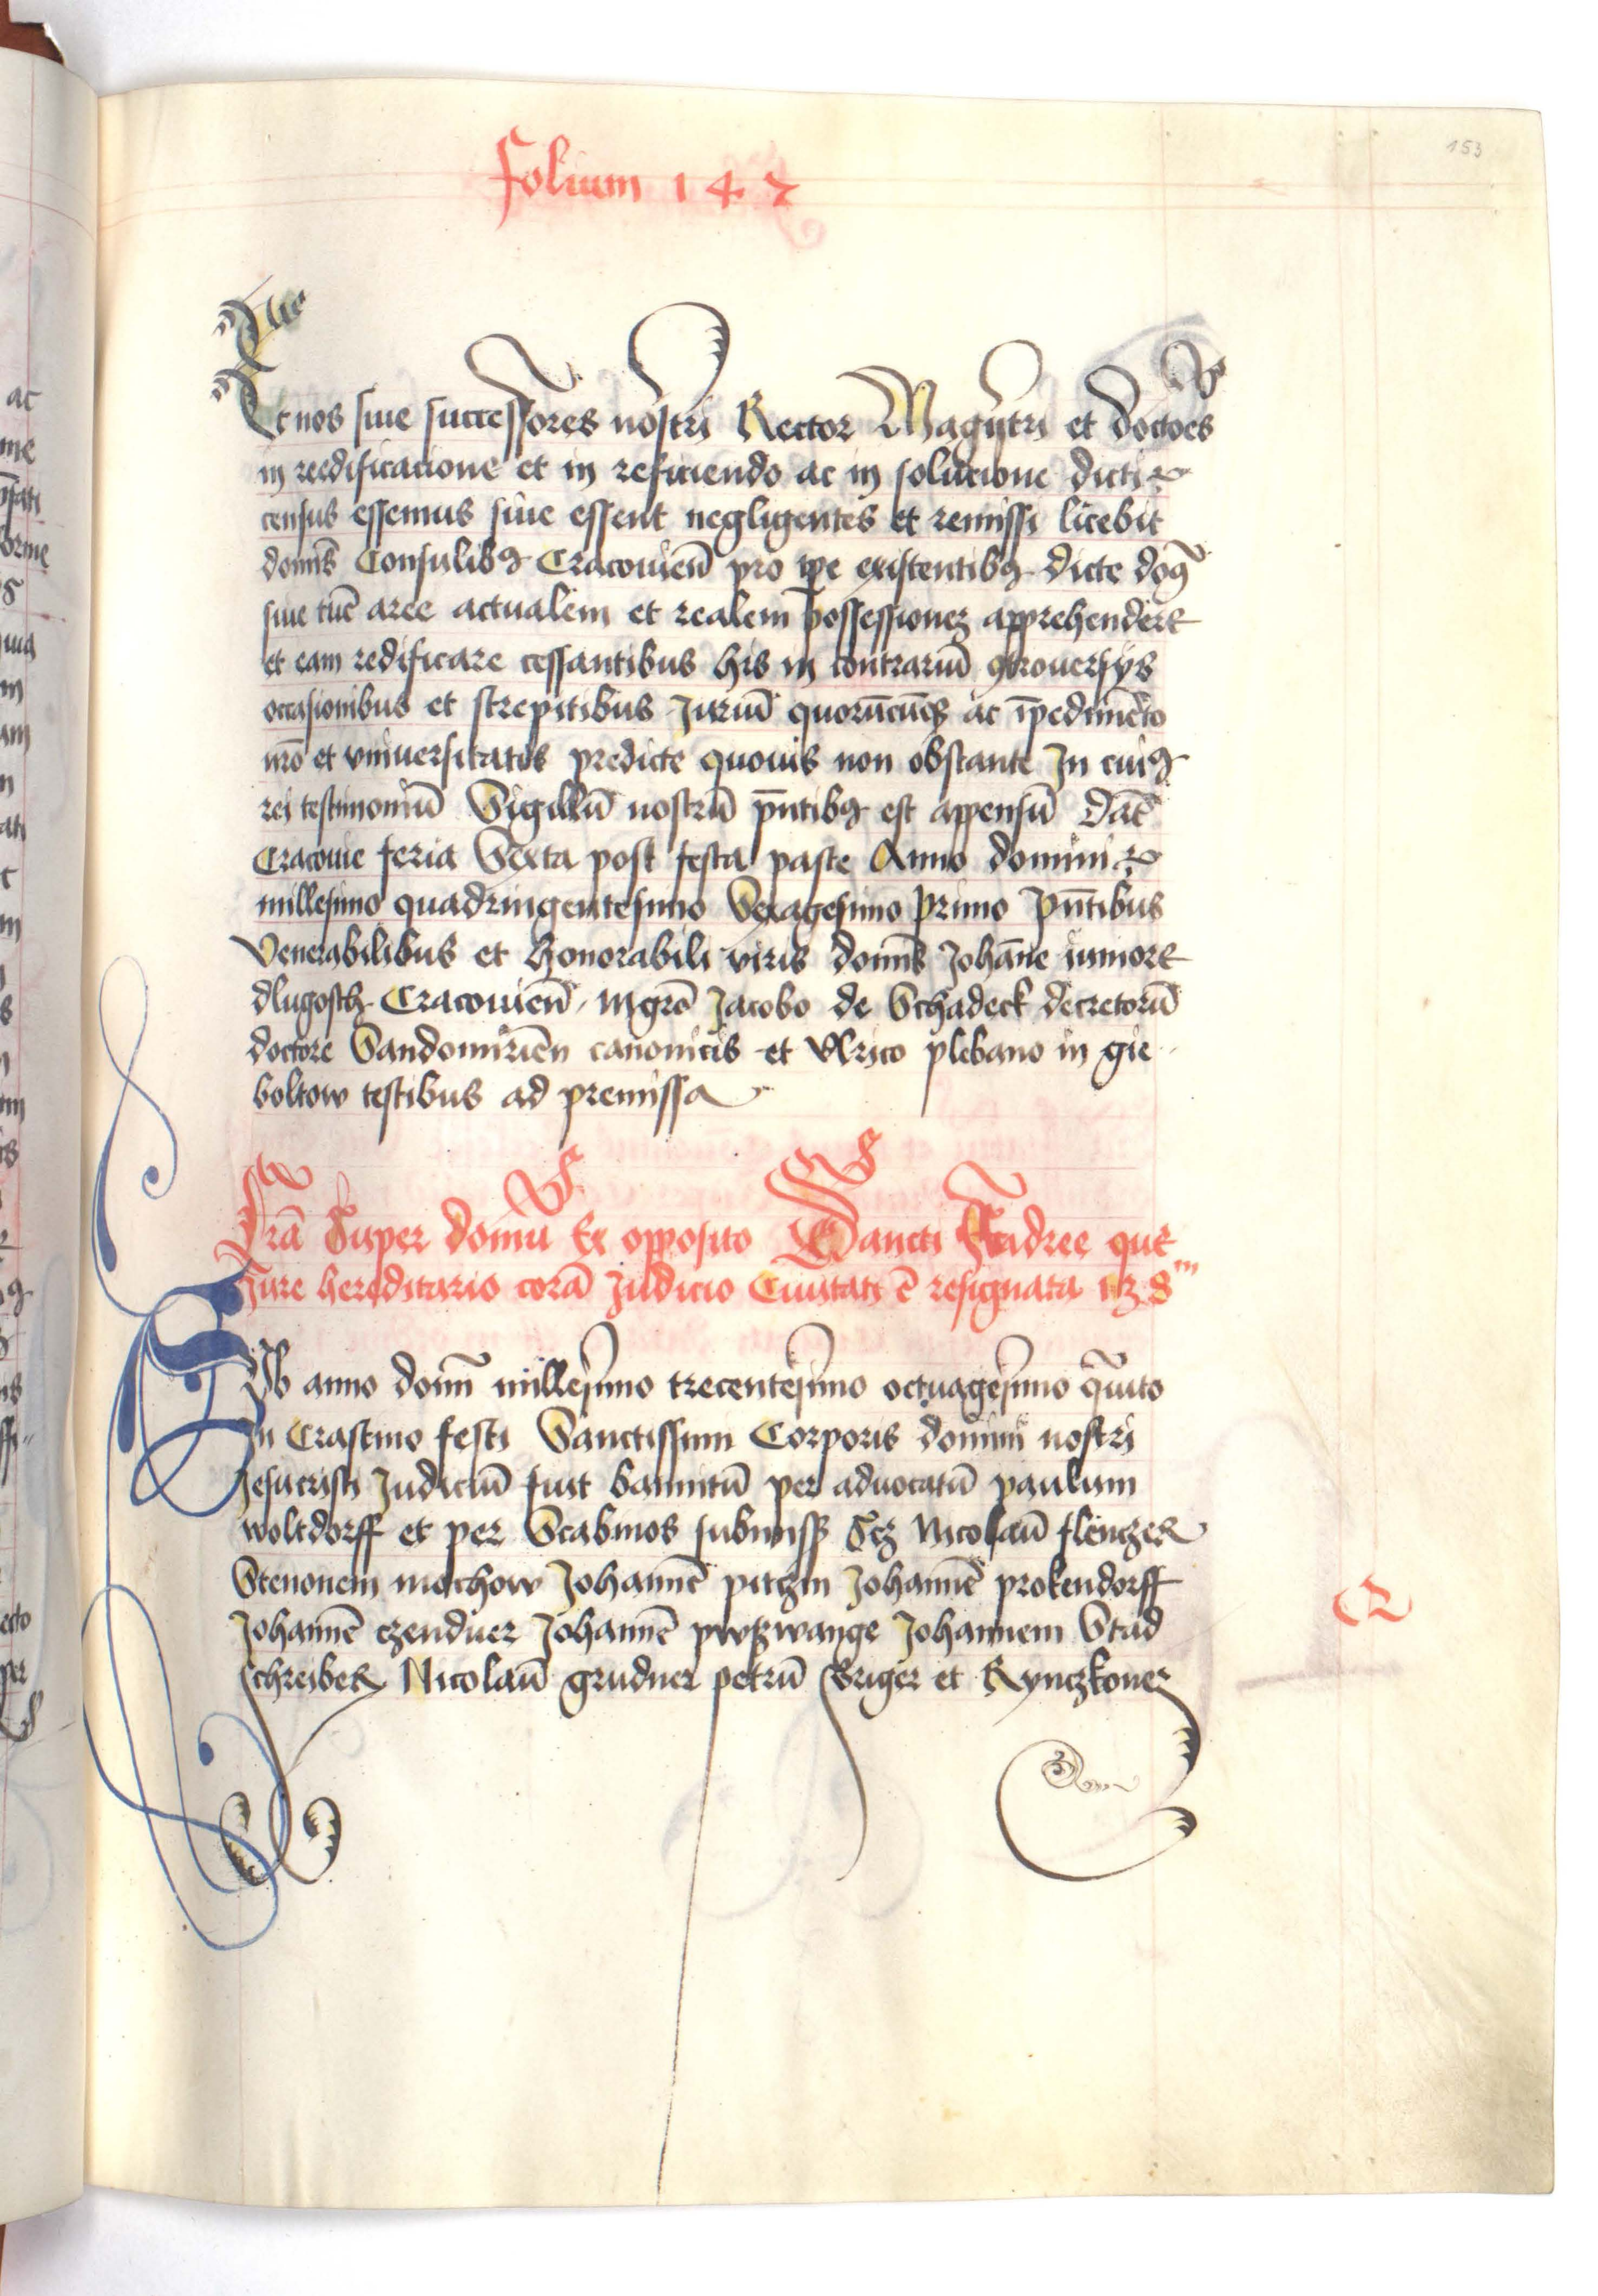 153
folium 147
Et nos siue successores nostri Rector Magistri et doctoēs
in reedificacione et in reficiendo ac in solucione dicti
census essemus siue essent negligentes et remissi licebit
domīs Consulibꝫ Cracouieñ pro tpe existentibꝫ dicte domꝫ
siue tūc aree actualem et realem possessionez apprehendere
et eam redificare cessantibus his in contrariū ꝯtrouersijs
occasionibus et strepitibus Juriū quorūcūqꝫ ac īpedimēto
nrō et vniuersitatis predicte quouis non obstante In cuiꝫ
rei testimoniū Sigillū nostrū pñtibꝫ est appensū Dat̄
Cracouie feria Sexta post festa pasce Anno domini
millesimo quadringentesimo Sexagesimo primo pñtibus
Venerabilibus et honorabili viris domīs Johāne iuniore
dlugosch Cracouieñ Mgrō Jacobo de Schadeck decretorū
doctore Sandomirieñ canonicis et Vlrico plebano in gie
boltow testibus ad premissa
Lrā Super domū Ex opposito Sancti Andree que
Jure hereditario corā Judicio Ciuitatis ē resignata
SVb anno domī millesimo trecentesimo octuagesimo q̄uito
In Crastino festi Sanctissimi Corporis domini nostri
Jesucristi Judiciū fuit bannitū per aduocatū paulum
woltdorff et per Scabinos subnissꝫ Scz Nicolaū flenczer
Stenonem mochow Johannē pitczin Johannē prokendorff
Johannē czenduer Johannē pwszwange Johannem Stad
schreiber Nicolaū grudner petrū Briger et Rynczkoner